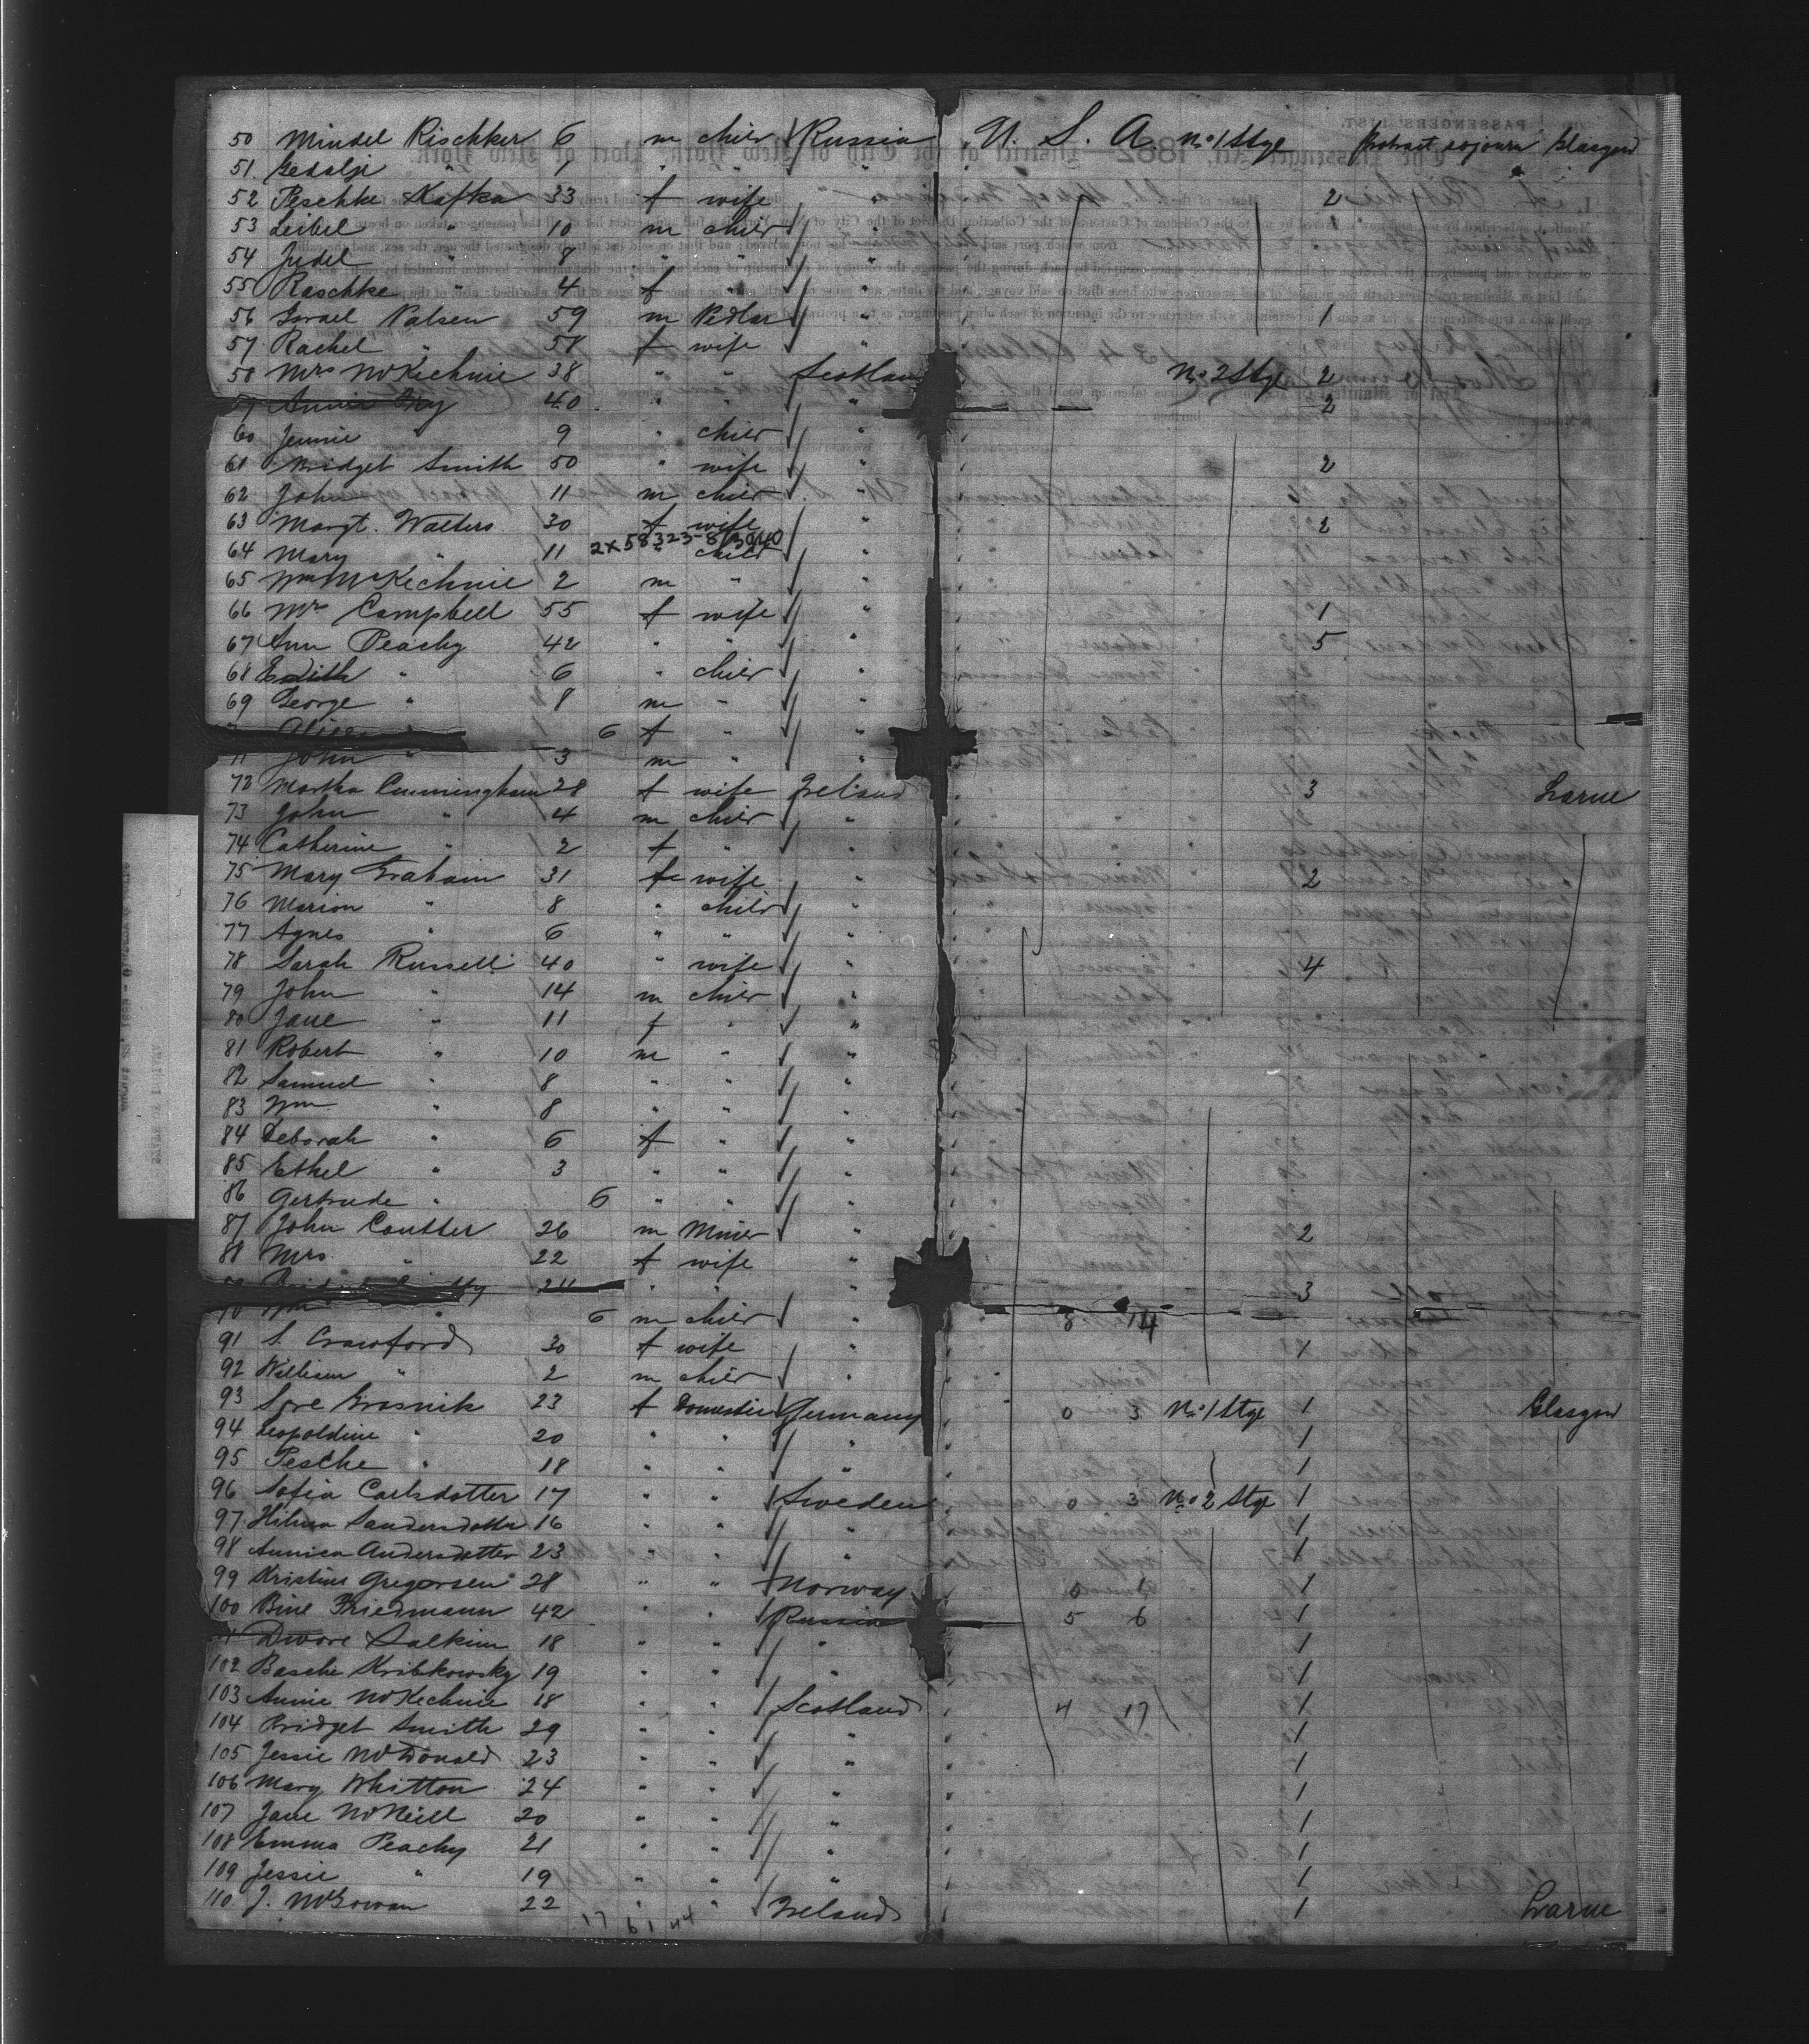 50 Mindel Rischker 6 m child Russia U. S. A. No 1 Stge Protract sojourn Glasgow
51 Gedalje " 1 " " "
52 Peschke Kafka 33 f wife " 2
53 Leibel " 10 m child "
54 Judel " 8 " " "
55 Raschke " 4 f " "
56 Israel Palsen 59 m Pedlar " 1
57 Rachel " 58 f wife "
58 Mrs McKechnie 38 " " Scotland No 2 Stge 2
Annie 40 " " " 2
60 Jennie " 9 " child "
61 Bridget Smith 50 " wife " 2
62 John " 11 m child "
63 Margt. Walters 30 f wife " 2
64 Mary " 11 " child "
65 Wm McKechnie 2 m " "
66 Mrs Campbell 55 f wife " 1
67 Ann Peachy 42 " " " 5
68 Edith " 6 " child "
69 George " 8 m " "
Alice " 6 f " "
71 John " 3 m " "
72 Martha Cunningham 28 f wife Ireland 3 Larne
73 John " 4 m child "
74 Catherine " 2 f " "
75 Mary Graham 31 f wife " 2
76 Marion " 8 " child "
77 Agnes " 6 " " "
78 Sarah Russell 40 " wife " 4
79 John " 14 m child "
80 Jane " 11 f " "
81 Robert " 10 m " "
82 Samuel " 8 " " "
83 Wm " 8 " " "
84 Deborah " 6 f " "
85 Ethel " 3 " " "
86 Gertrude " 6 " " "
87 John Coulter 26 m Miner " 2
88 Mrs " 22 f wife "
24 " " " 3
Wm " 6 m child " 8 14
91 S. Crawford 30 f wife " 1
92 William " 2 m child "
93 Sore Grosnik 23 f Domestic Germany 0 3 No 1 Stge 1 Glasgow
94 Leopoldine " 20 " " " 1
95 Pesche " 18 " " " 1
96 Sofia Carlsdotter 17 " " Sweden 0 3 No 2 Stge 1
97 Hilma Sandersdotter 16 " " " 1
98 Annica Andersdotter 23 " " " 1
99 Kristine Gregersen 28 " " Norway 0 1 1
100 Bine Friedmann 42 " " Russia 5 6 1
Dwore Salkim 18 " " " 1
102 Basche Kribkowsky 19 " " " 1
103 Annie McKechnie 18 " " Scotland 4 17 1
104 Bridget Smith 29 " " " 1
105 Jessie McDonald 23 " " " 1
106 Mary Whitton 24 " " " 1
107 Jane McNeill 20 " " " 1
108 Emma Peachy 21 " " " 1
109 Jessie " 19 " " " 1
110 J. McGowan 22 " " Ireland 1 Larne
17 61 44